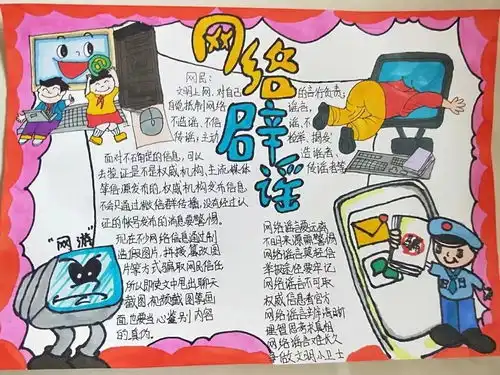 网络
辟谣
网民：
文明上网，对自己的言行负责，
自觉抵制网络谣言，
不造谣、不信谣、不
传谣，主动检举、揭发
造谣者、
传谣者等
面对不确定的信息，可以
去验证是不是权威机构、主流媒体
等信源发布的，权威机构发布信息
不会只通过微信群传播，没有经过认
证的帐号发布的消息要警惕。
现在不少网络信息通过制
造假图片，拼接篡改图
片等方式骗取网民信任
所以即使文中甩出聊天
截图、视频截图等画
面也要当心鉴别内容
的真伪。
"网游"
网络谣言要远离
不明来源需警惕
网络谣言莫轻信
举报途径要牢记
网络谣言不可取
权威信息看官方
网络谣言辨清晰
理智思考求真相
网络谣言难长久
争做文明小卫士